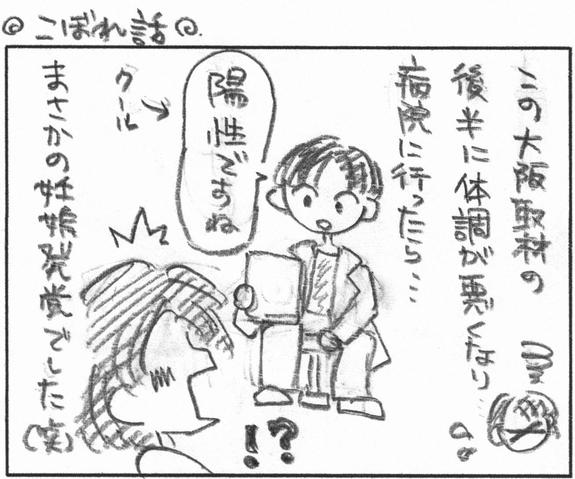 ◎こぼれ話◎
この大阪取材の
後半に体調が悪くなり
病院に行ったら…
陽性ですね
クール
まさかの妊娠発覚でした(笑)
!?